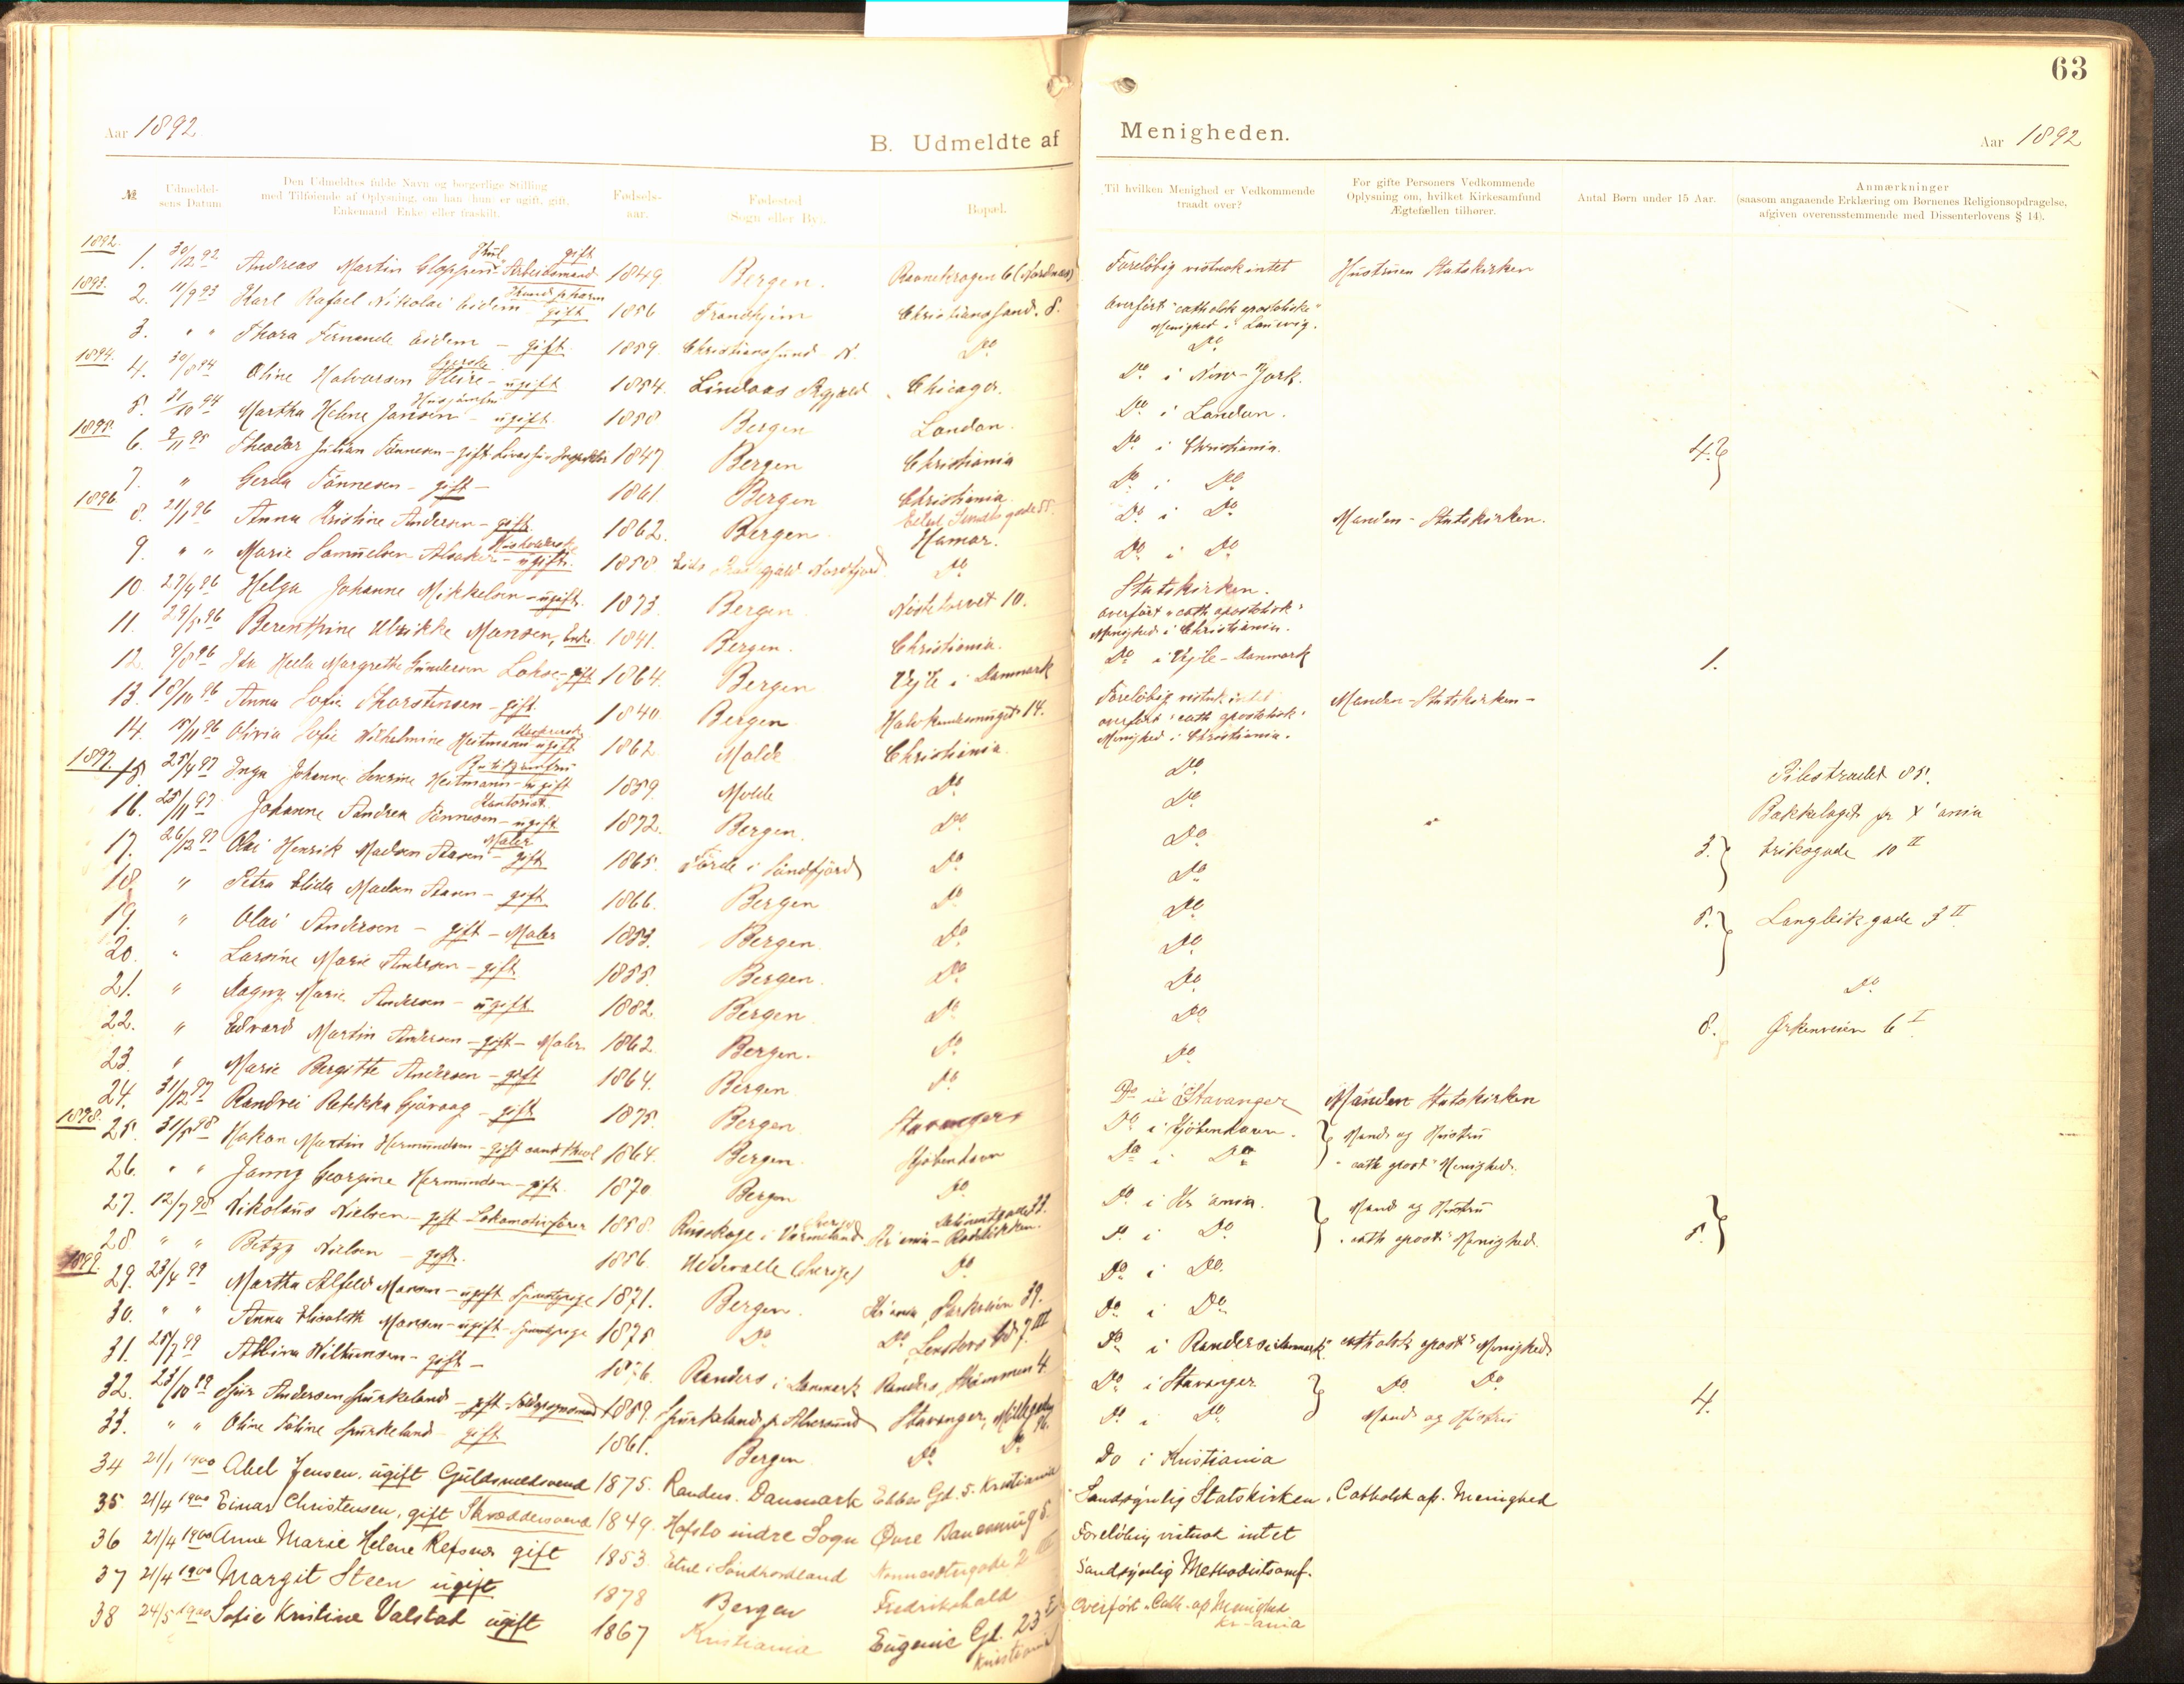 63
Aar 1892
B. Udmeldte af Menigheden.
Aar 1892
№
Udmeldelsens Datum
Den Udmeldtes fulde Navn og borgerlige Stilling
med Tilføiende af Oplysning, om han (hun) er ugift, gift,
Enkemand, Enke eller fraskilt.
Fødselsaar.
Fødested
(Sogn eller By).
Bopæl.
Til hvilken Menighed er Vedkommende
traadt over?
For gifte Personers Vedkommende
Oplysning om, hvilket Kirkesamfund
Ægtefællen tilhører.
Antal Børn under 15 Aar.
Anmærkninger
(saasom angaaende Erklæring om Børnenes Religionsopdragelse,
afgiven overensstemmende med Dissenterlovens § 14).
1892.
1. 30/12 92 Andreas Martin Gloppen Arbeidsmand gift 1849 Bergen. 6 (Nordnæs) Foreløbig vistnok intet Hustruen Statskirken
1893.
2. 11/9 93 Karl Rafael Nikolai Eidem gift 1856 Trondhjem Christianssand. S. Overført "catholsk apostoliske" Menighed i
3. " " Thora Fernande Eidem - gift. 1859. Christianssund N. Do Do
1894.
4. 30/8 94 Oline Halvorsen - ugift 1854. Lindaas Chicago. Do i New-York.
5. 31/10 94 Martha Heline Jansen - ugift 1858 Bergen London. Do i London.
1895.
6. 9/11 95 Theodor Julian Tønnesen - gift 1847 Bergen Christiania Do i Christiania. 4.
7. " Gerda Tønnesen - gift - 1861 Bergen Christiania. Do i Do
1896
8. 21/1 96 Anna Kristine Andersen - gift 1862. Bergen Do i Do Manden - Statskirken.
9. " " Marie Samuelsen - ugift. Husholderske 1858 Nordfjord Hamar. Do i Do
10. 27/4 96 Helga Johanne Mikkelsen - ugift. 1873. Bergen. Do Statskirken.
11. 29/5 96 Berenthine Ulrikke Mansen, Enke. 1841. Bergen. Nøstetorvet 10. overført "cath apostolisk" Menighed i Christiania.
12. 9/8 96 Ida Margrethe Gundersen Lohse - gift 1864. Bergen Christiania. Vejle i Danmark Do i Vejle - Danmark 1.
13. 18/10 96 Anna Sofie Thorstensen - gift 1840. Bergen 14. Foreløbig vistnok intet Manden - Statskirken -
14. 15/11 96 Olivia Sofie Wilhelmine Heitmann ugift 1862 Molde Christiania. overført "cath apostolisk" Menighed i Christiania.
1897.
15. 25/4 97 Inga Johanne Severine Heitmann - ugift 1859. Molde Do Do Pilestrædet 85.
16. 25/11 97 Johanne Andrea Tønnesen - ugift Kontorist. 1872. Bergen. Do Do Bækkelaget
17. 26/12 97 Olai Henrik Madsen Aasen - gift Maler 1865. Førde i Søndfjord Do Do 3. Eriksgade 10 II
18. " Petra Elida Madsen Aasen - gift 1866. Bergen Do Do
19. " Olai Andersen - gift - Maler 1853. Bergen. Do Do 5. Langleikgade 3 II
20. " Larsine Marie Andersen - gift 1855. Bergen. Do Do
21. " Dagny Marie Andersen - ugift 1882 Bergen Do Do Do
22. " Edvard Martin Andersen - gift - Maler 1862 Bergen. Do Do 8. Ørkenveien 6 I
23. " Marie Bergitte Andersen - gift 1864. Bergen Do Do
24. 31/12 97 Randvei Rebekka Gjøvaag - gift 1875. Bergen. Stavanger Do i Stavanger Manden Statskirken
1898.
25. 31/5 98 Hakon Martin Hermundsen - gift 1864. Bergen. Kjøbenhavn Do i Kjøbenhavn. Mand og Hustru
26. " " Janny Georgine Hermundsen - gift. 1870 Bergen Do. Do i Do "cath apost" Menighed.
27. 12/7 98 Nikolaus Nielsen - gift - Lokomotivfører 1858. i Värmeland Sverige Kr'ania Do i Kr'ania. Mand og Hustru
28. " " Betzy Nielsen - gift. 1856. Uddevalle (Sverige) Do. Do i Do "cath apost" Menighed. 5.
1899.
29. 23/4 99 Martha Alfhild Mansen - ugift 1871. Bergen. Kr'ania, Parkveien 39. Do i Do.
30. " " Anna Elisabeth Mansen - ugift - 1875 Do Do III Do i Do
31. 25/7 99 Albina - gift - Randers i Danmark Randers, Strømmen 4. Do i Randers i Danmark "catholsk apost" Menighed.
32. 23/10 99 Sjur Andersen Spurkeland - gift - 1859. Spurkeland p. Alversund Stavanger, Do i Stavanger. Do Do 4.
33. " " Oline Spurkeland - gift 1861. Bergen Do Do Do i Do. Mand og Hustru
34 21/1 1900 Abel Jensen, ugift Guldsmedsvend 1875. Randers. Danmark Ebbes Gd. 5. Kristiania Do i Kristiania
35 21/4 1900 Einar Christensen, gift Skræddersvend 1849. Hafslo indre Sogn Øvre Sandsynlig Statskirken. Catholsk ap. Menighed
36 21/4 1900 Anne Marie Helene Refsnes gift 1853. Etne i Søndhordland Foreløbig vistnok intet
37 21/4 1900 Margit Steen ugift 1878 Bergen Fredrikshald Sandsynlig Methodistsamf.
38 24/5 1900 Sofie Kristine Valstad ugift 1867 Kristiania Eugenie Gd. 23 Kristiania Overført "Cath. ap Menighed Kr-ania